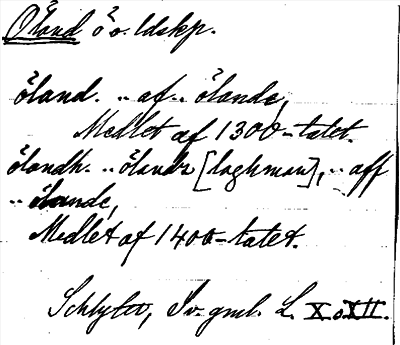 Öland ö o. ldskp.
öland. .. af .. ölande,
Medlet af 1300-talet.
ölandh. .. ölandz [laghman], .. aff
.. ölande,
Medlet af 1400-talet.
Schlyter, Sv. gml. L. X o XII.